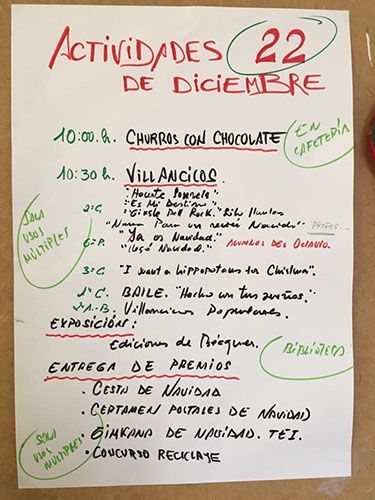 ACTIVIDADES 22
DE DICIEMBRE
10:00.h. CHURROS CON CHOCOLATE
EN CAFETERÍA
10:30 h. VILLANCICOS.
SALA USOS MÚLTIPLES
2ºC. "Es Mi Destino"
Rock."
"Nana Para un Navidad" PROFES...
6ºP. "Ya es Navidad." ALUMNOS DEL OCTAVIO.
Navidad."
3ºC "I want a hippopotamus for Christmas".
1ºC. BAILE. "Hecho con tus sueños."
Villancicos Populares.
EXPOSICIÓN:
Ediciones de Bécquer.
BIBLIOTECA
ENTREGA DE PREMIOS
. CESTA DE NAVIDAD
. CERTAMEN POSTALES DE NAVIDAD
. GIMKANA DE NAVIDAD. TEI.
. CONCURSO RECICLAJE
SALA USOS MÚLTIPLES